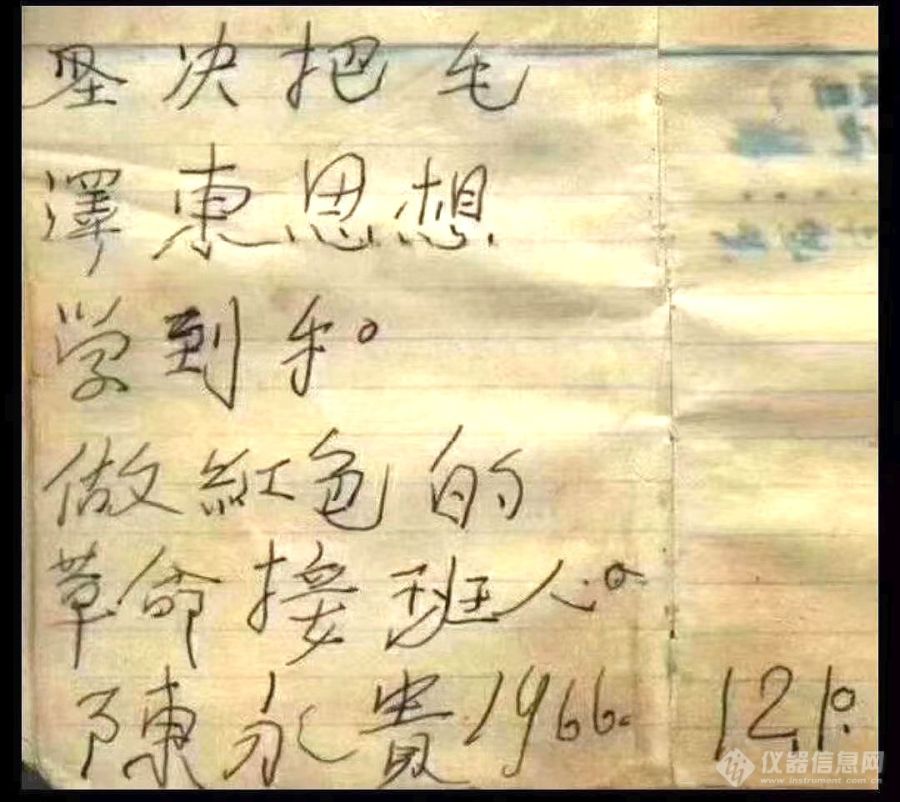 坚决把毛
澤東思想
学到手。
做紅色的
革命接班人。
陳永貴1966. 12,1。
仪器信息网
www.instrument.com.cn